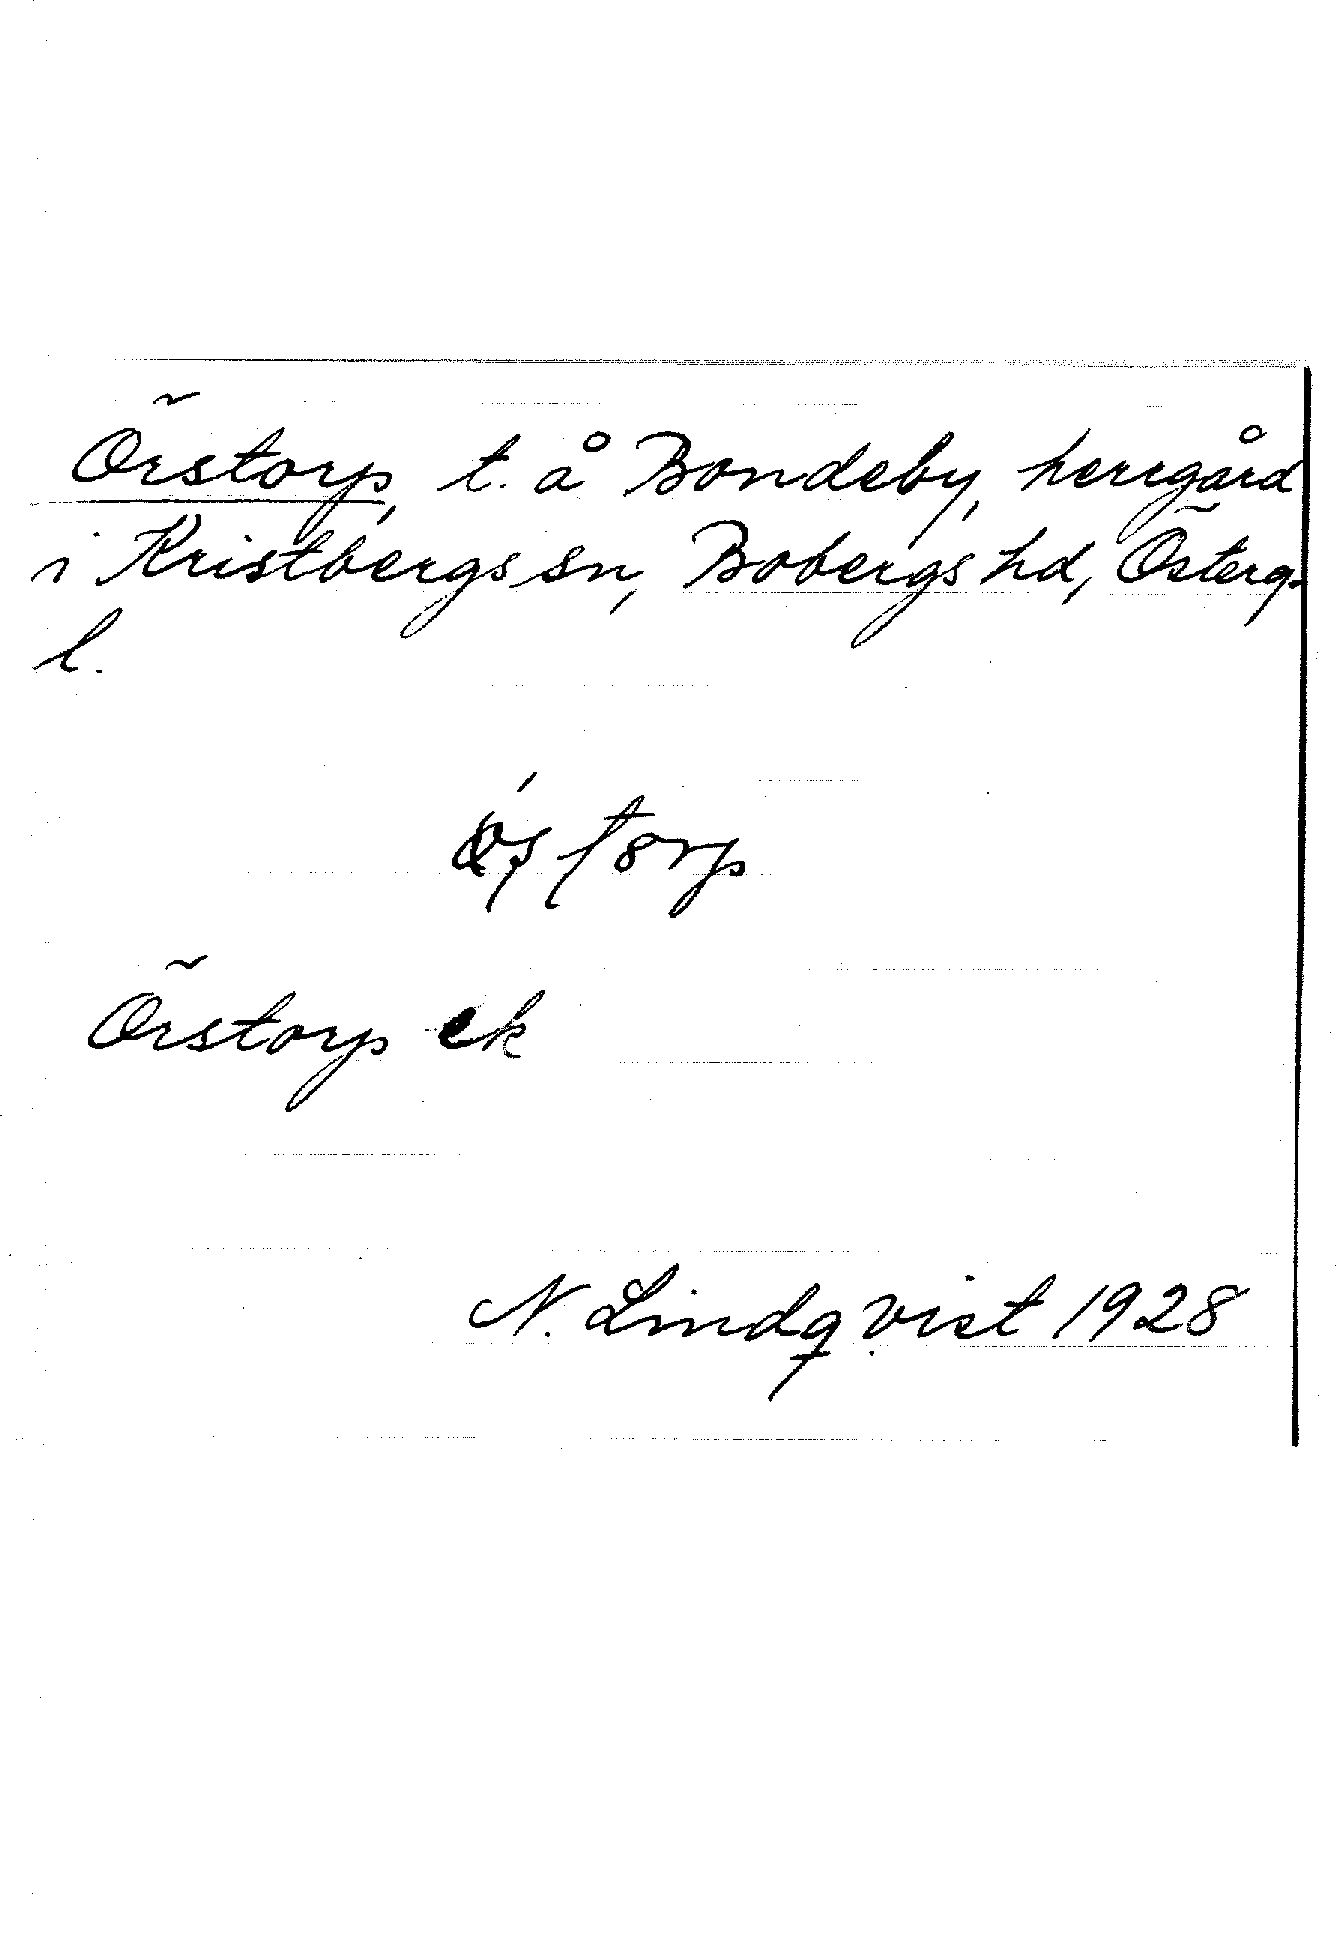 Örstorp, t. å Bondeby, herrgård
i Kristbergs sn, Bobergs hd, Österg.
l.
Örstorp ek
N. Lindqvist 1928